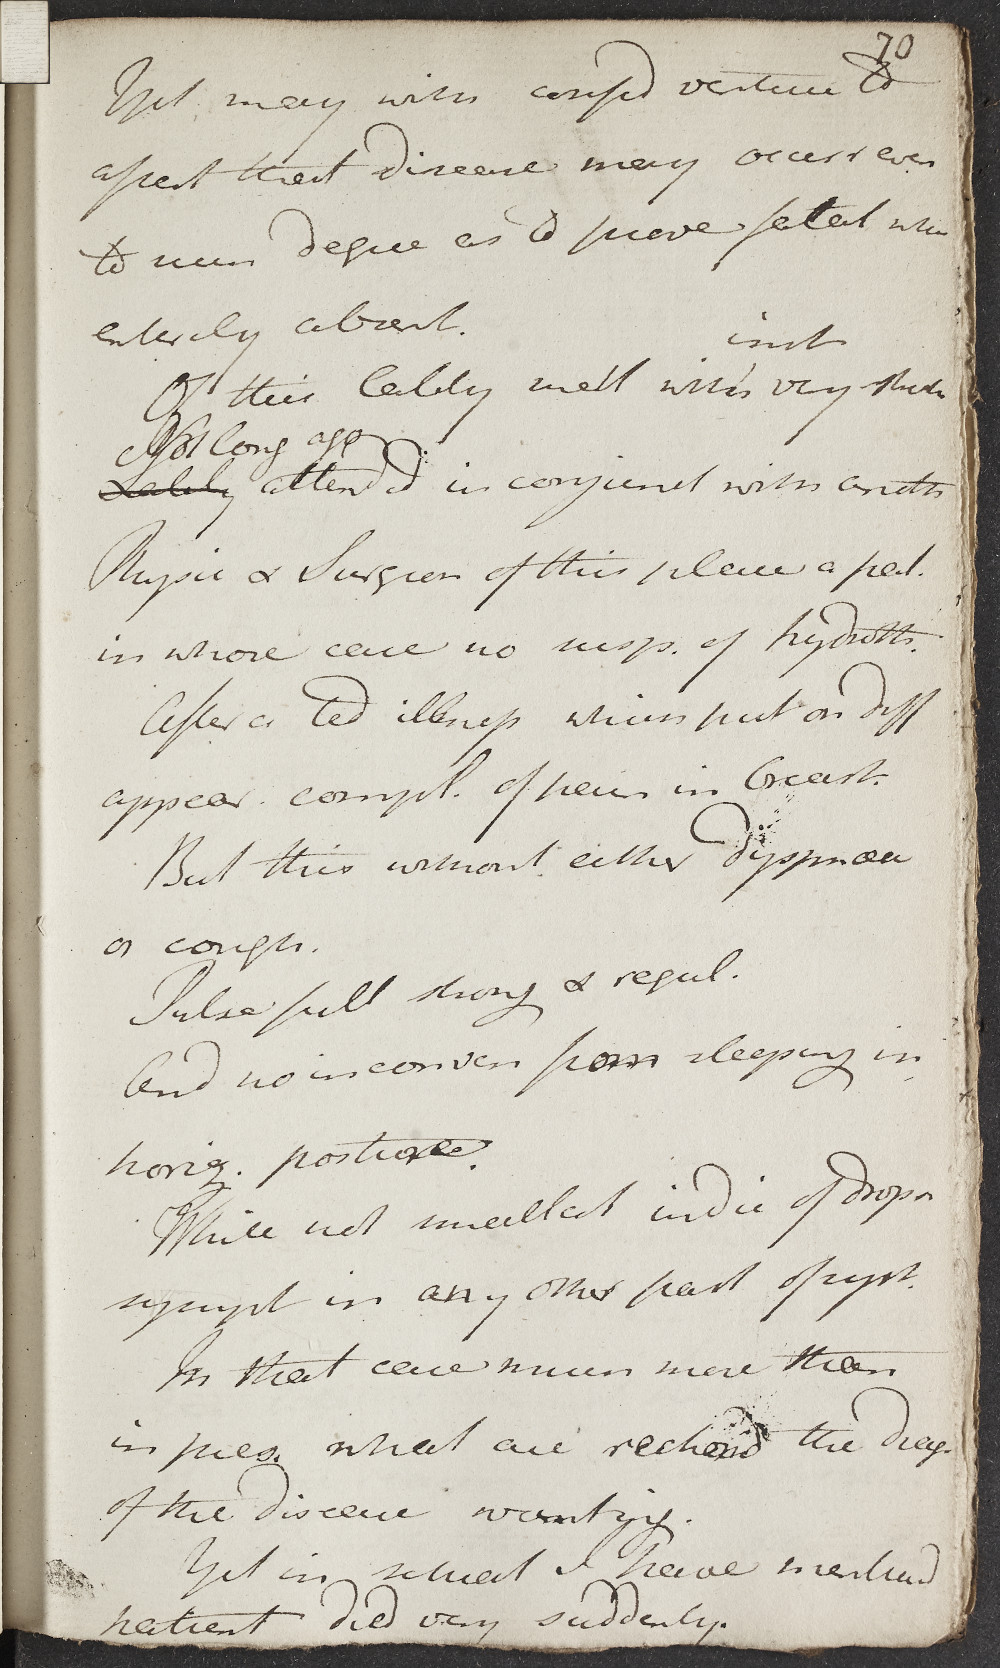 70
Yet may with confid venture to
assert that disease may occurr even
to such degree as to prove fatal when
entirely absent.
Of this lately mett with very strik
inst
Not long ago
Lately attended in conjunct with anoth
Physic & Surgeon of this place a pat.
in whose case no susp. of hydroth.
After a ted illness which put on diff
appear. compl. of pain in breast.
But this without either dyspnœa
or cough.
Pulse full strong & regul.
And no inconven from sleeping in
horiz. posture.
While not smallest indic of drops
sympt in any other part of syst.
In that case much more than
in pres. what are reckond the diag.
of the disease wanting.
Yet in what I have mentiond
patient died very suddenly.